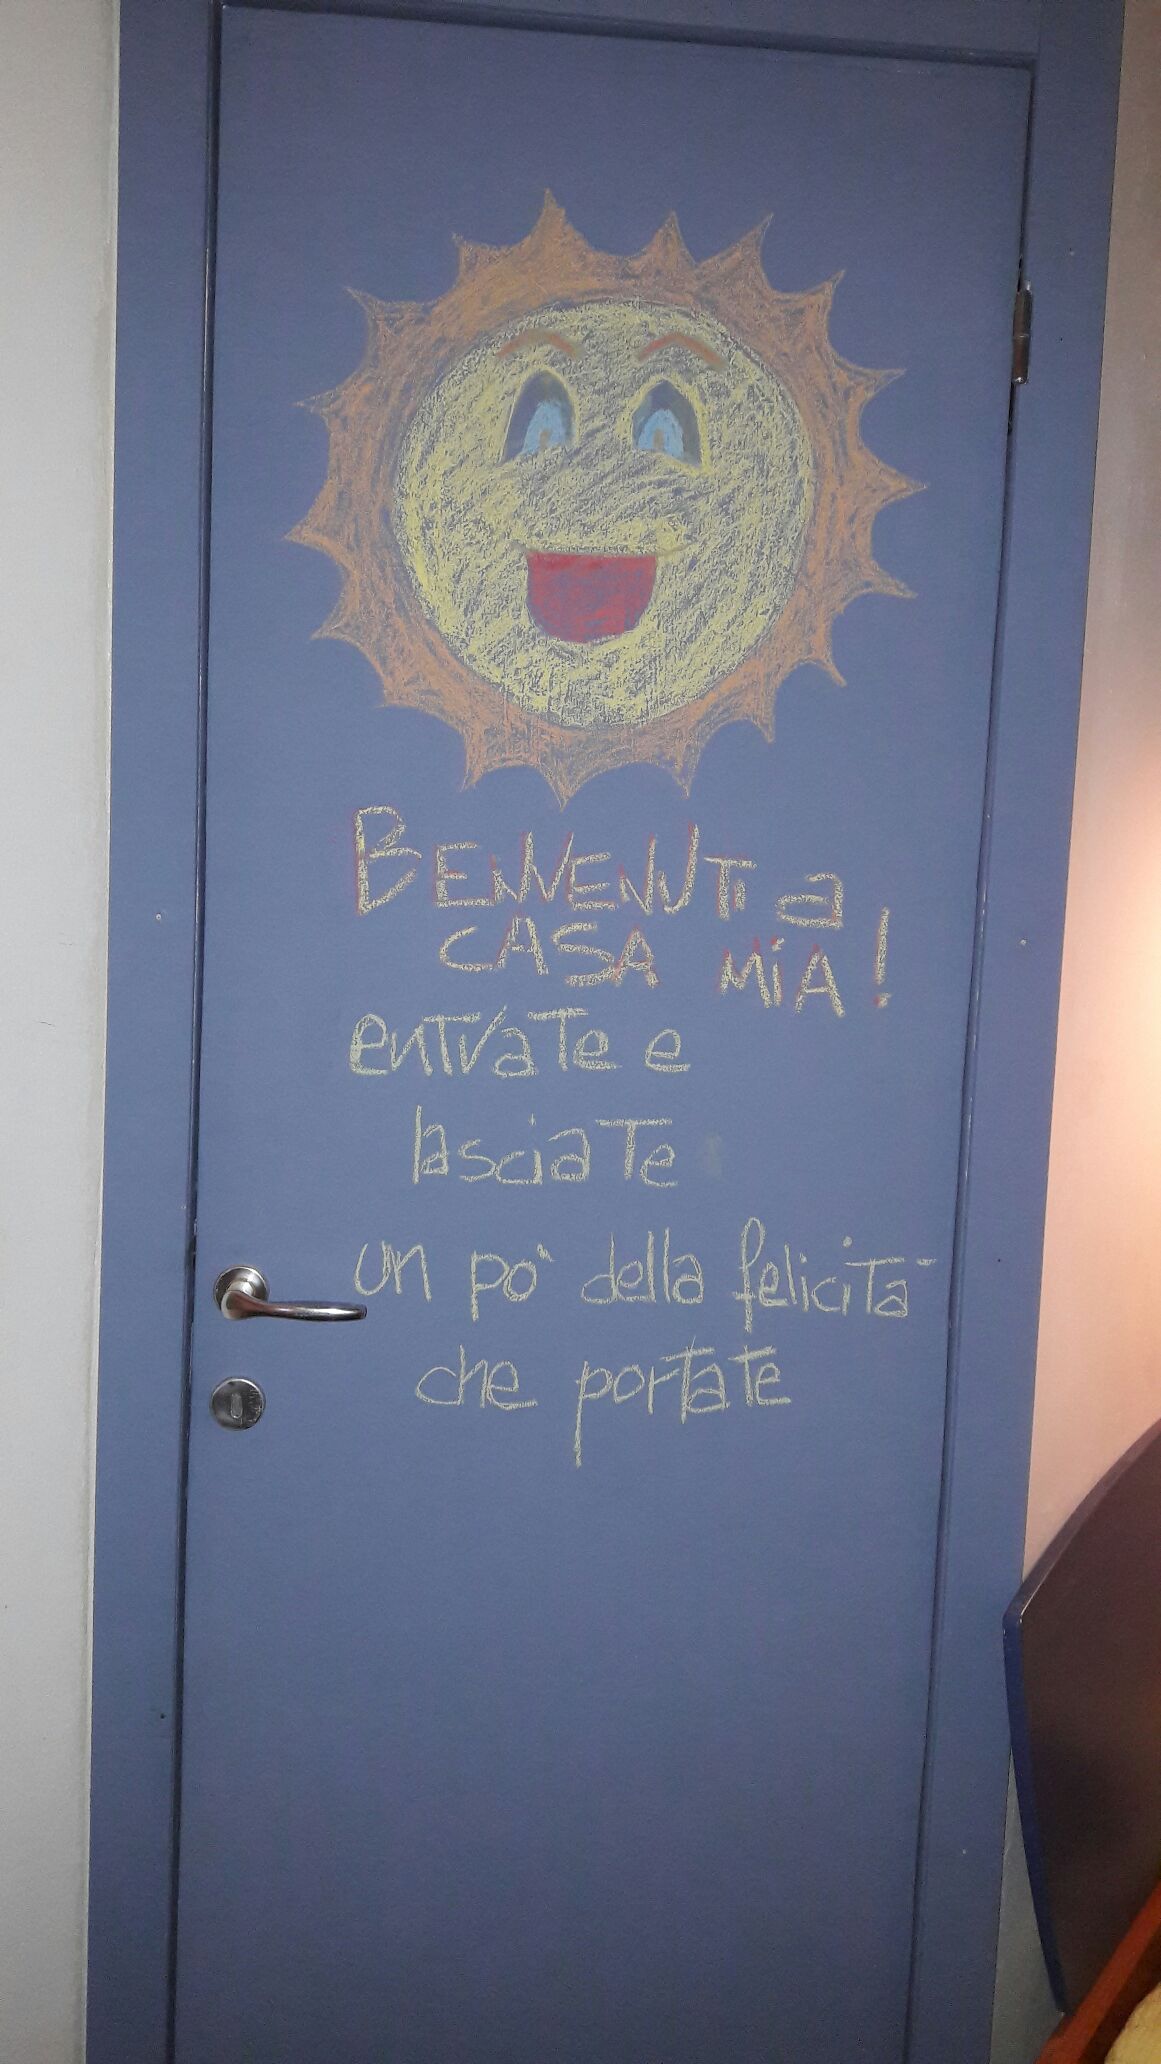 BENVENUTI a
CASA MiA!
entrate e
lasciate
un po' della felicità
che portate